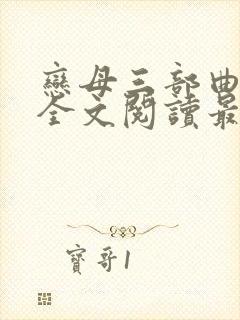 戀母三部曲
全文閱讀最
寶哥1